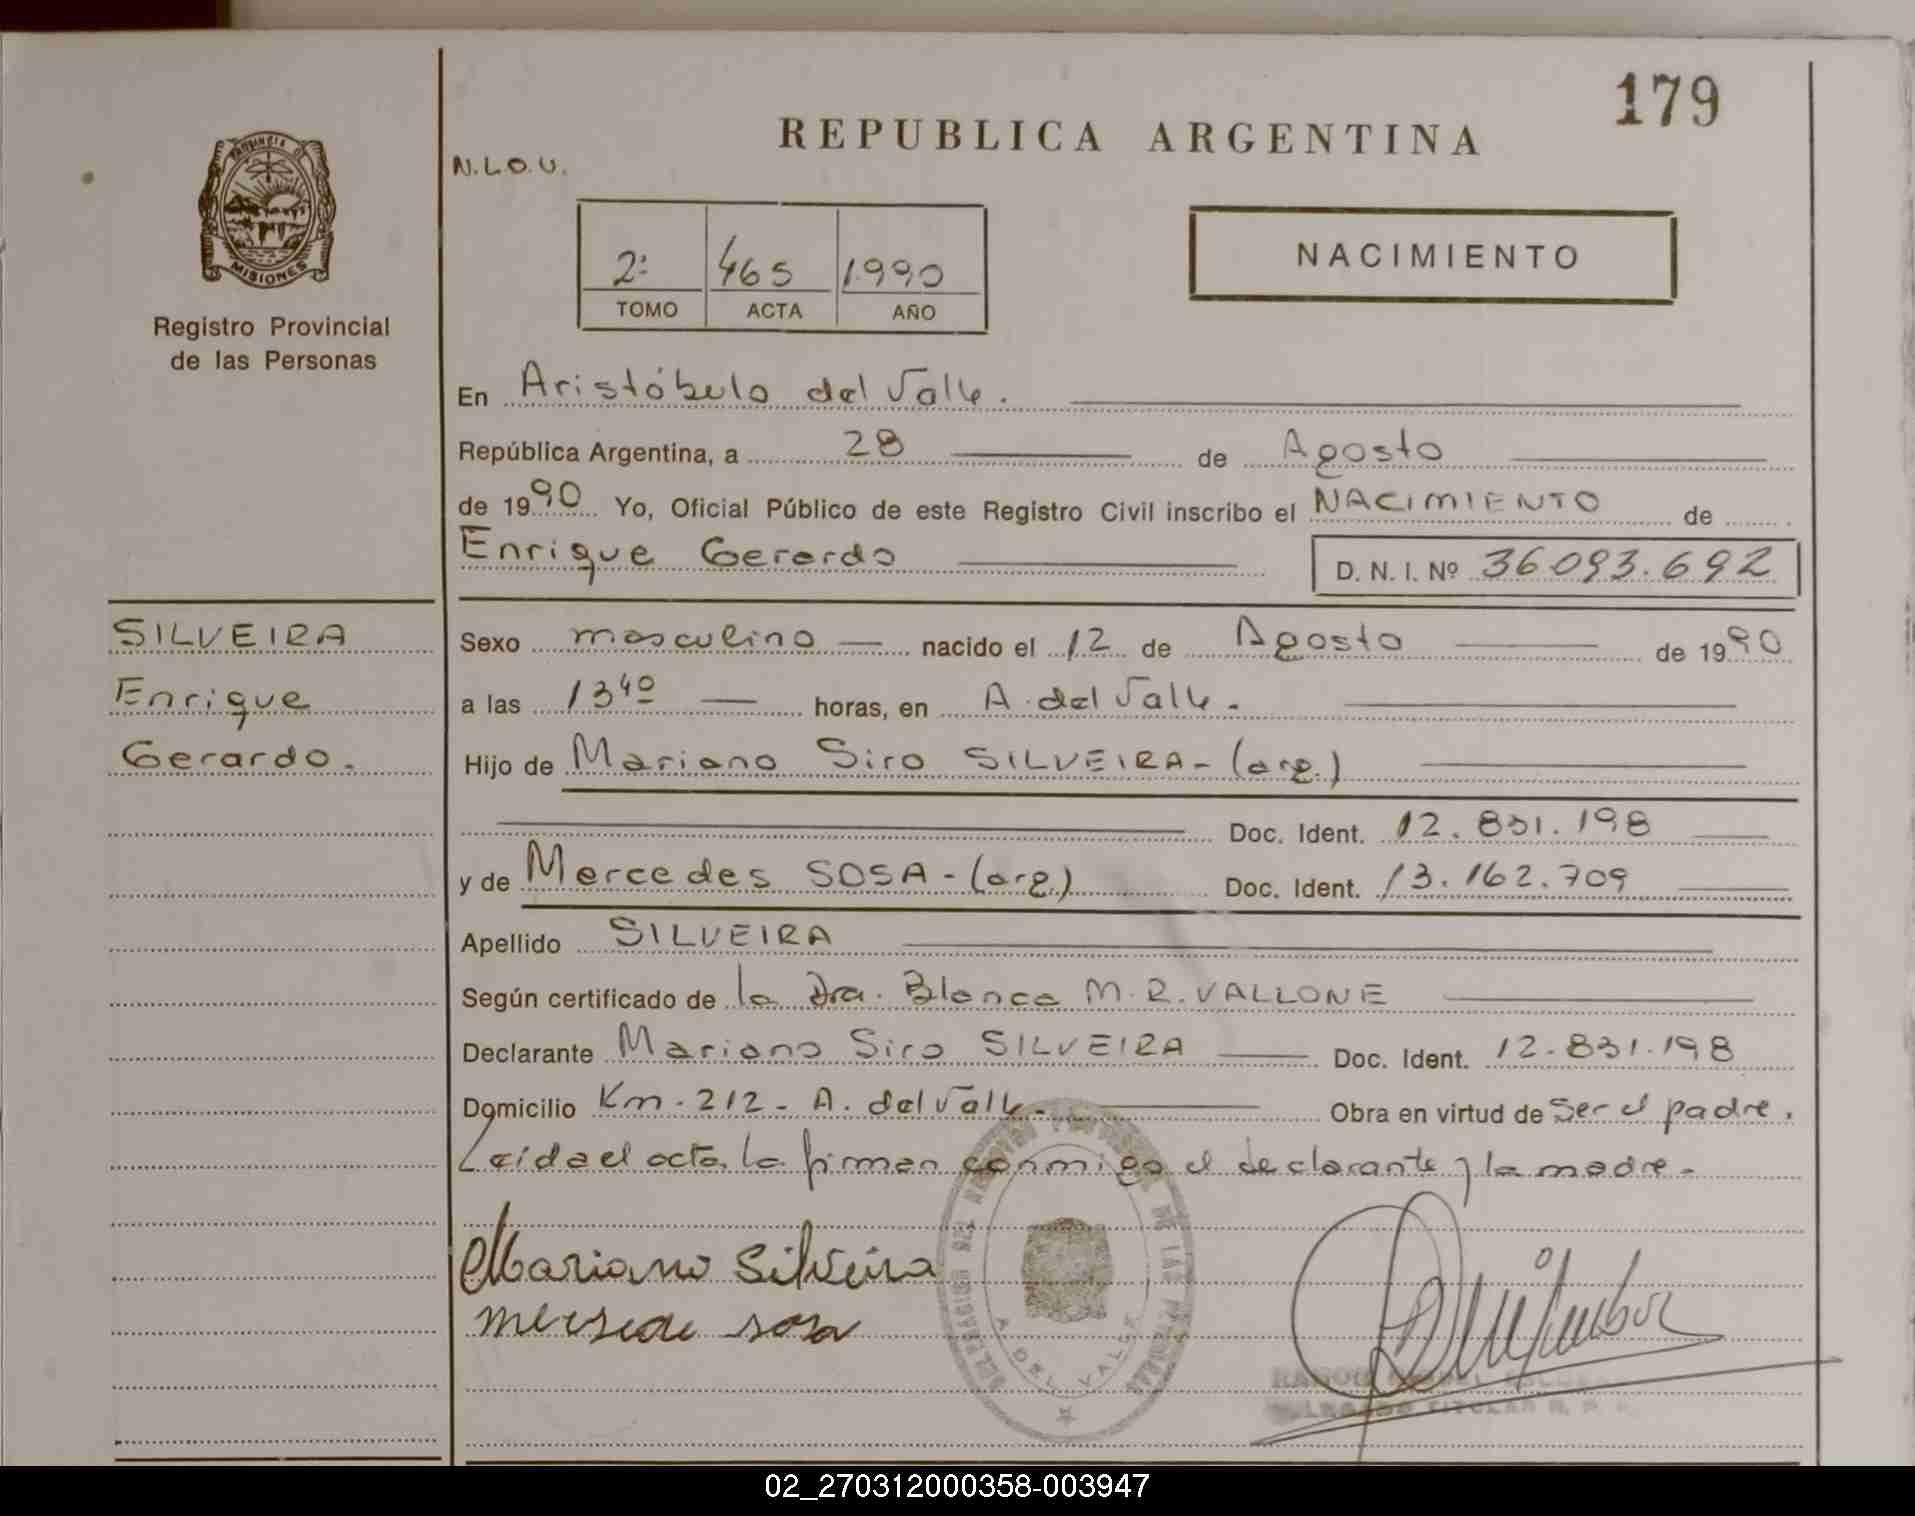 179
REPUBLICA ARGENTINA
N.L.O.U.
PROVINCIA D
MISIONES
Registro Provincial
de las Personas
2º 465 1990
TOMO ACTA AÑO
NACIMIENTO
En Aristóbulo del Valle.
República Argentina, a 28 de Agosto
de 1990 Yo, Oficial Público de este Registro Civil inscribo el NACIMIENTO de
Enrique Gerardo D. N. I. Nº 36.093.692
SILVEIRA
Enrique
Gerardo.
Sexo masculino nacido el 12 de Agosto de 1990
a las 13 40 horas, en A. del Valle.
Hijo de Mariano Siro SILVEIRA - (arg.)
Doc. Ident. 12.831.198
y de Mercedes SOSA - (arg.) Doc. Ident. 13.162.709
Apellido SILVEIRA
Según certificado de la Dra. Blanca M. R. VALLONE
Declarante Mariano Siro SILVEIRA Doc. Ident. 12.831.198
Domicilio Km. 212 - A. del Valle. Obra en virtud de ser el padre.
Leida el acta, la firman conmigo el declarante y la madre.
Mariano Silveira
mersede sosa
DE LAS PERSONAS
A. DEL VALLE
RAMON
TITULAR R. P.
02_270312000358-003947